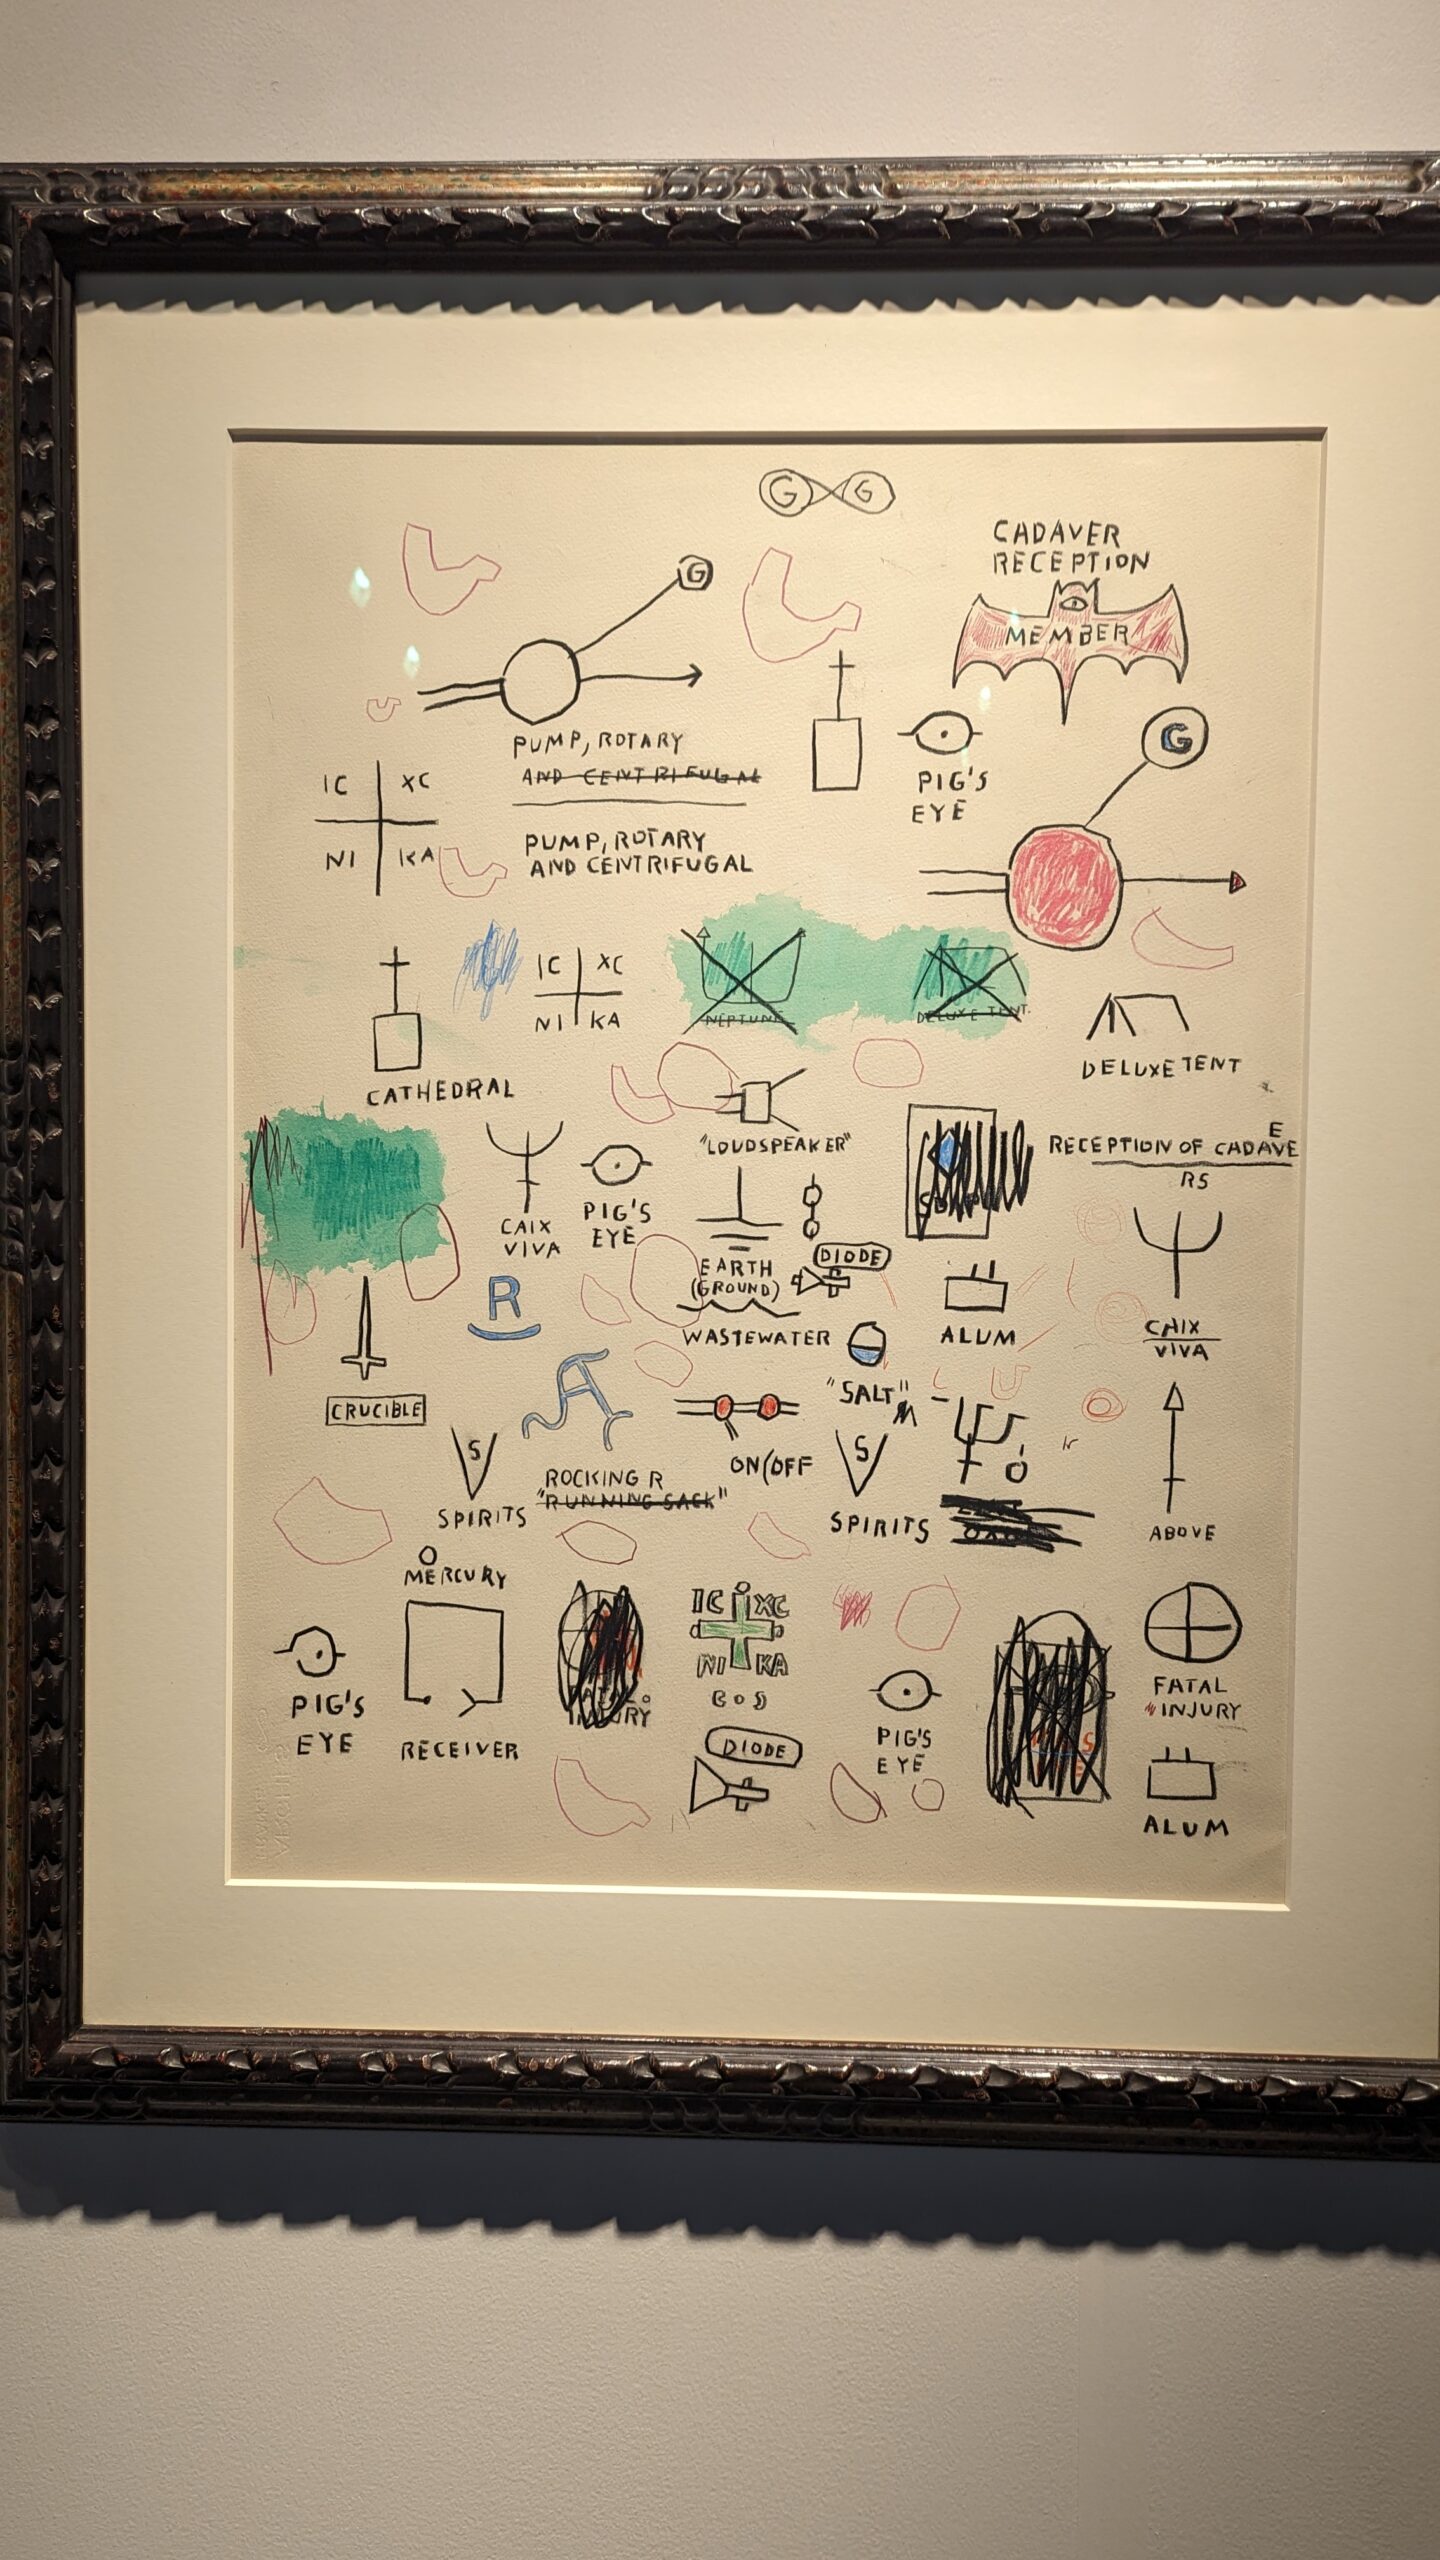 G G
CADAVER
RECEPTION
MEMBER
G
PUMP, ROTARY
AND CENTRIFUGAL
PUMP, ROTARY
AND CENTRIFUGAL
PIG'S
EYE
G
IC XC
NI KA
IC XC
NI KA
CATHEDRAL
NEPTUNE
DELUXE TENT
DELUXE TENT
"LOUDSPEAKER"
E
RECEPTION OF CADAVE
RS
CAIX
VIVA
PIG'S
EYE
EARTH
(GROUND)
DIODE
WASTEWATER
ALUM
CAIX
VIVA
R
CRUCIBLE
"SALT"
S
SPIRITS
ROCKING R
"RUNNING SACK"
ON/OFF
S
SPIRITS
ABOVE
MERCURY
PIG'S
EYE
RECEIVER
INJURY
IC XC
NI KA
DIODE
PIG'S
EYE
FATAL
"INJURY
ALUM